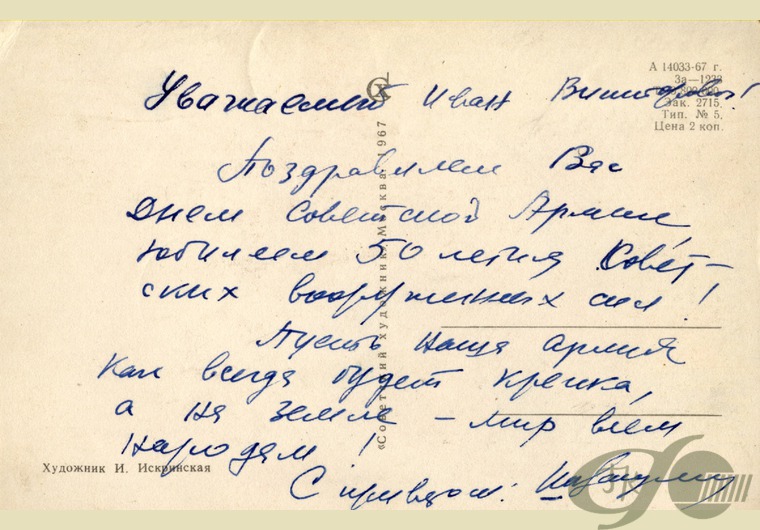 А 14033-67 г.
За—1232
Зак. 2715.
Тип. № 5.
Цена 2 коп.
Уважаемый Иван
Поздравляем Вас
Днем Советской Армии,
юбилеем 50 летия Совет-
ских вооруженных сил!
Пусть наша армия
как всегда будет крепка,
а на земле – мир всем
народам!
С приветом:
«Советский художник». Москва. 1967
Художник И. Искринская